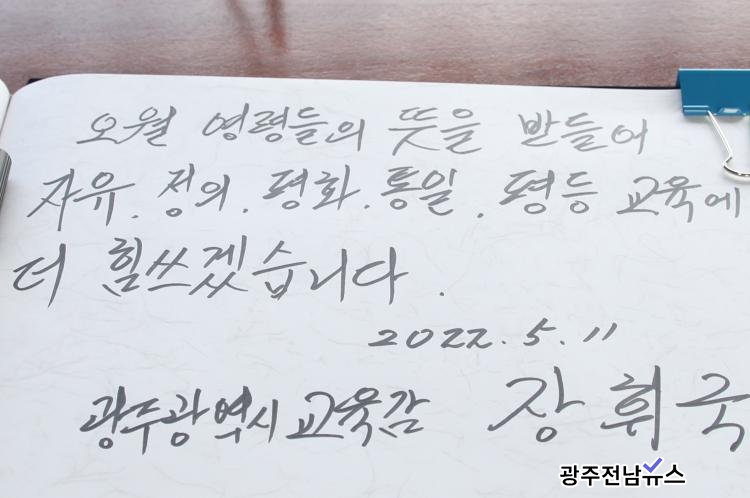 오월 영령들의 뜻을 받들어
자유. 정의. 평화. 통일. 평등 교육에
더 힘쓰겠습니다.
2022. 5. 11
광주광역시 교육감 장휘국
광주전남뉴스